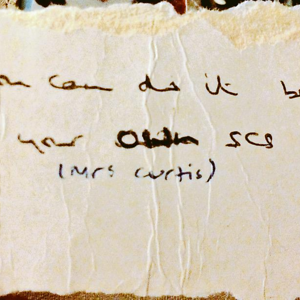 can do it b
your own scs
(Mrs Curtis)